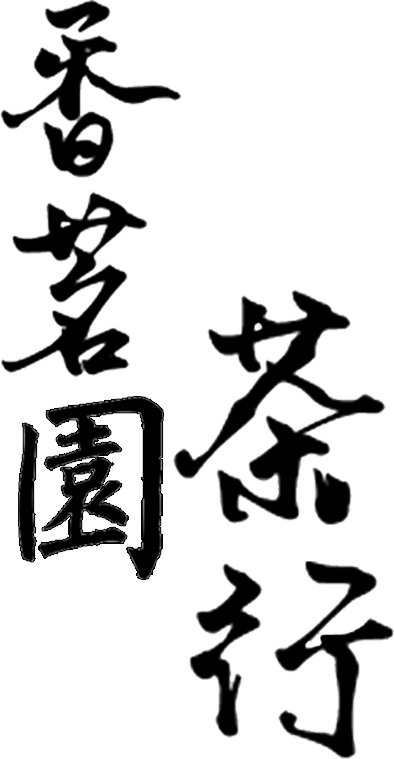 香茗園
茶行